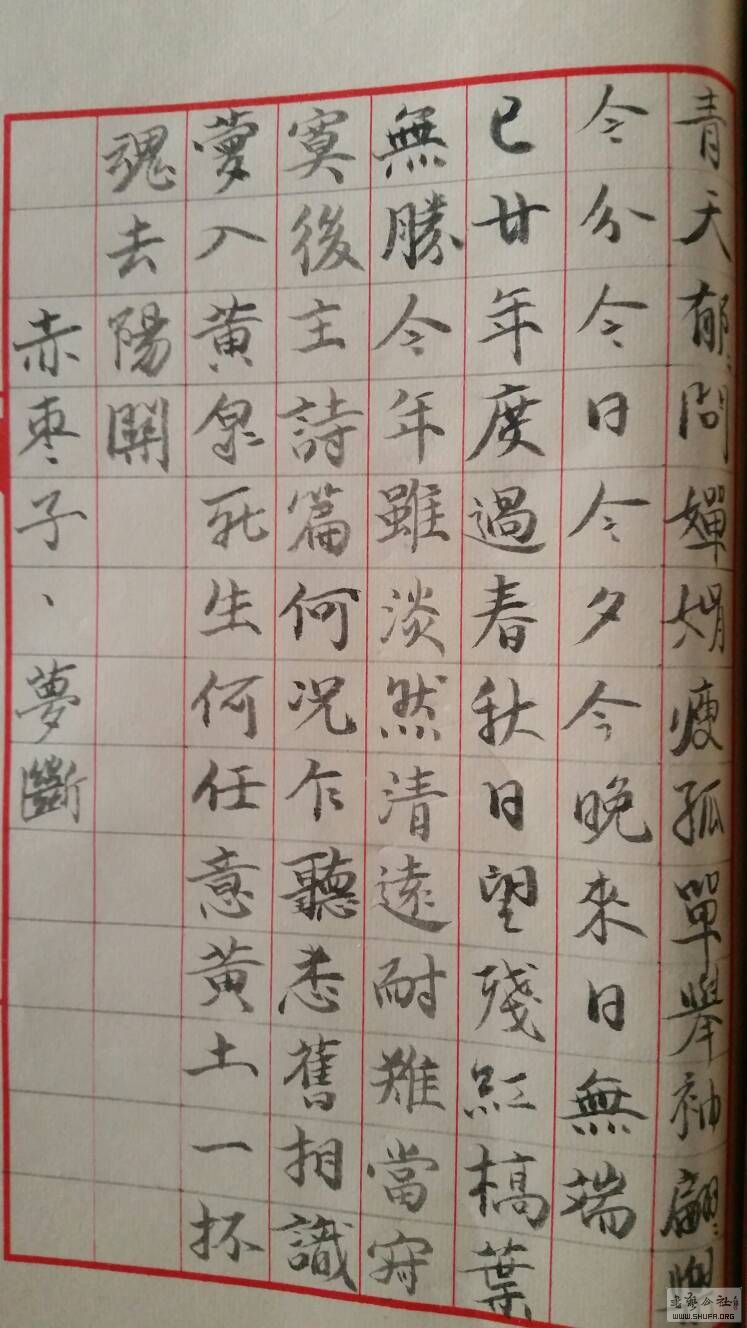 青天郁:問嬋娟瘦孤單舉袖翩:
今分今日今夕今晚來日無端
已廿年度過春秋日望殘紅槁葉
無勝今年雖淡然清遠耐難當寂
寞後主詩篇何況乍聽悉舊相識
夢入黃泉死生何任意黃土一抔
魂去陽關
赤棗子、夢斷
WWW.SHUFA.ORG